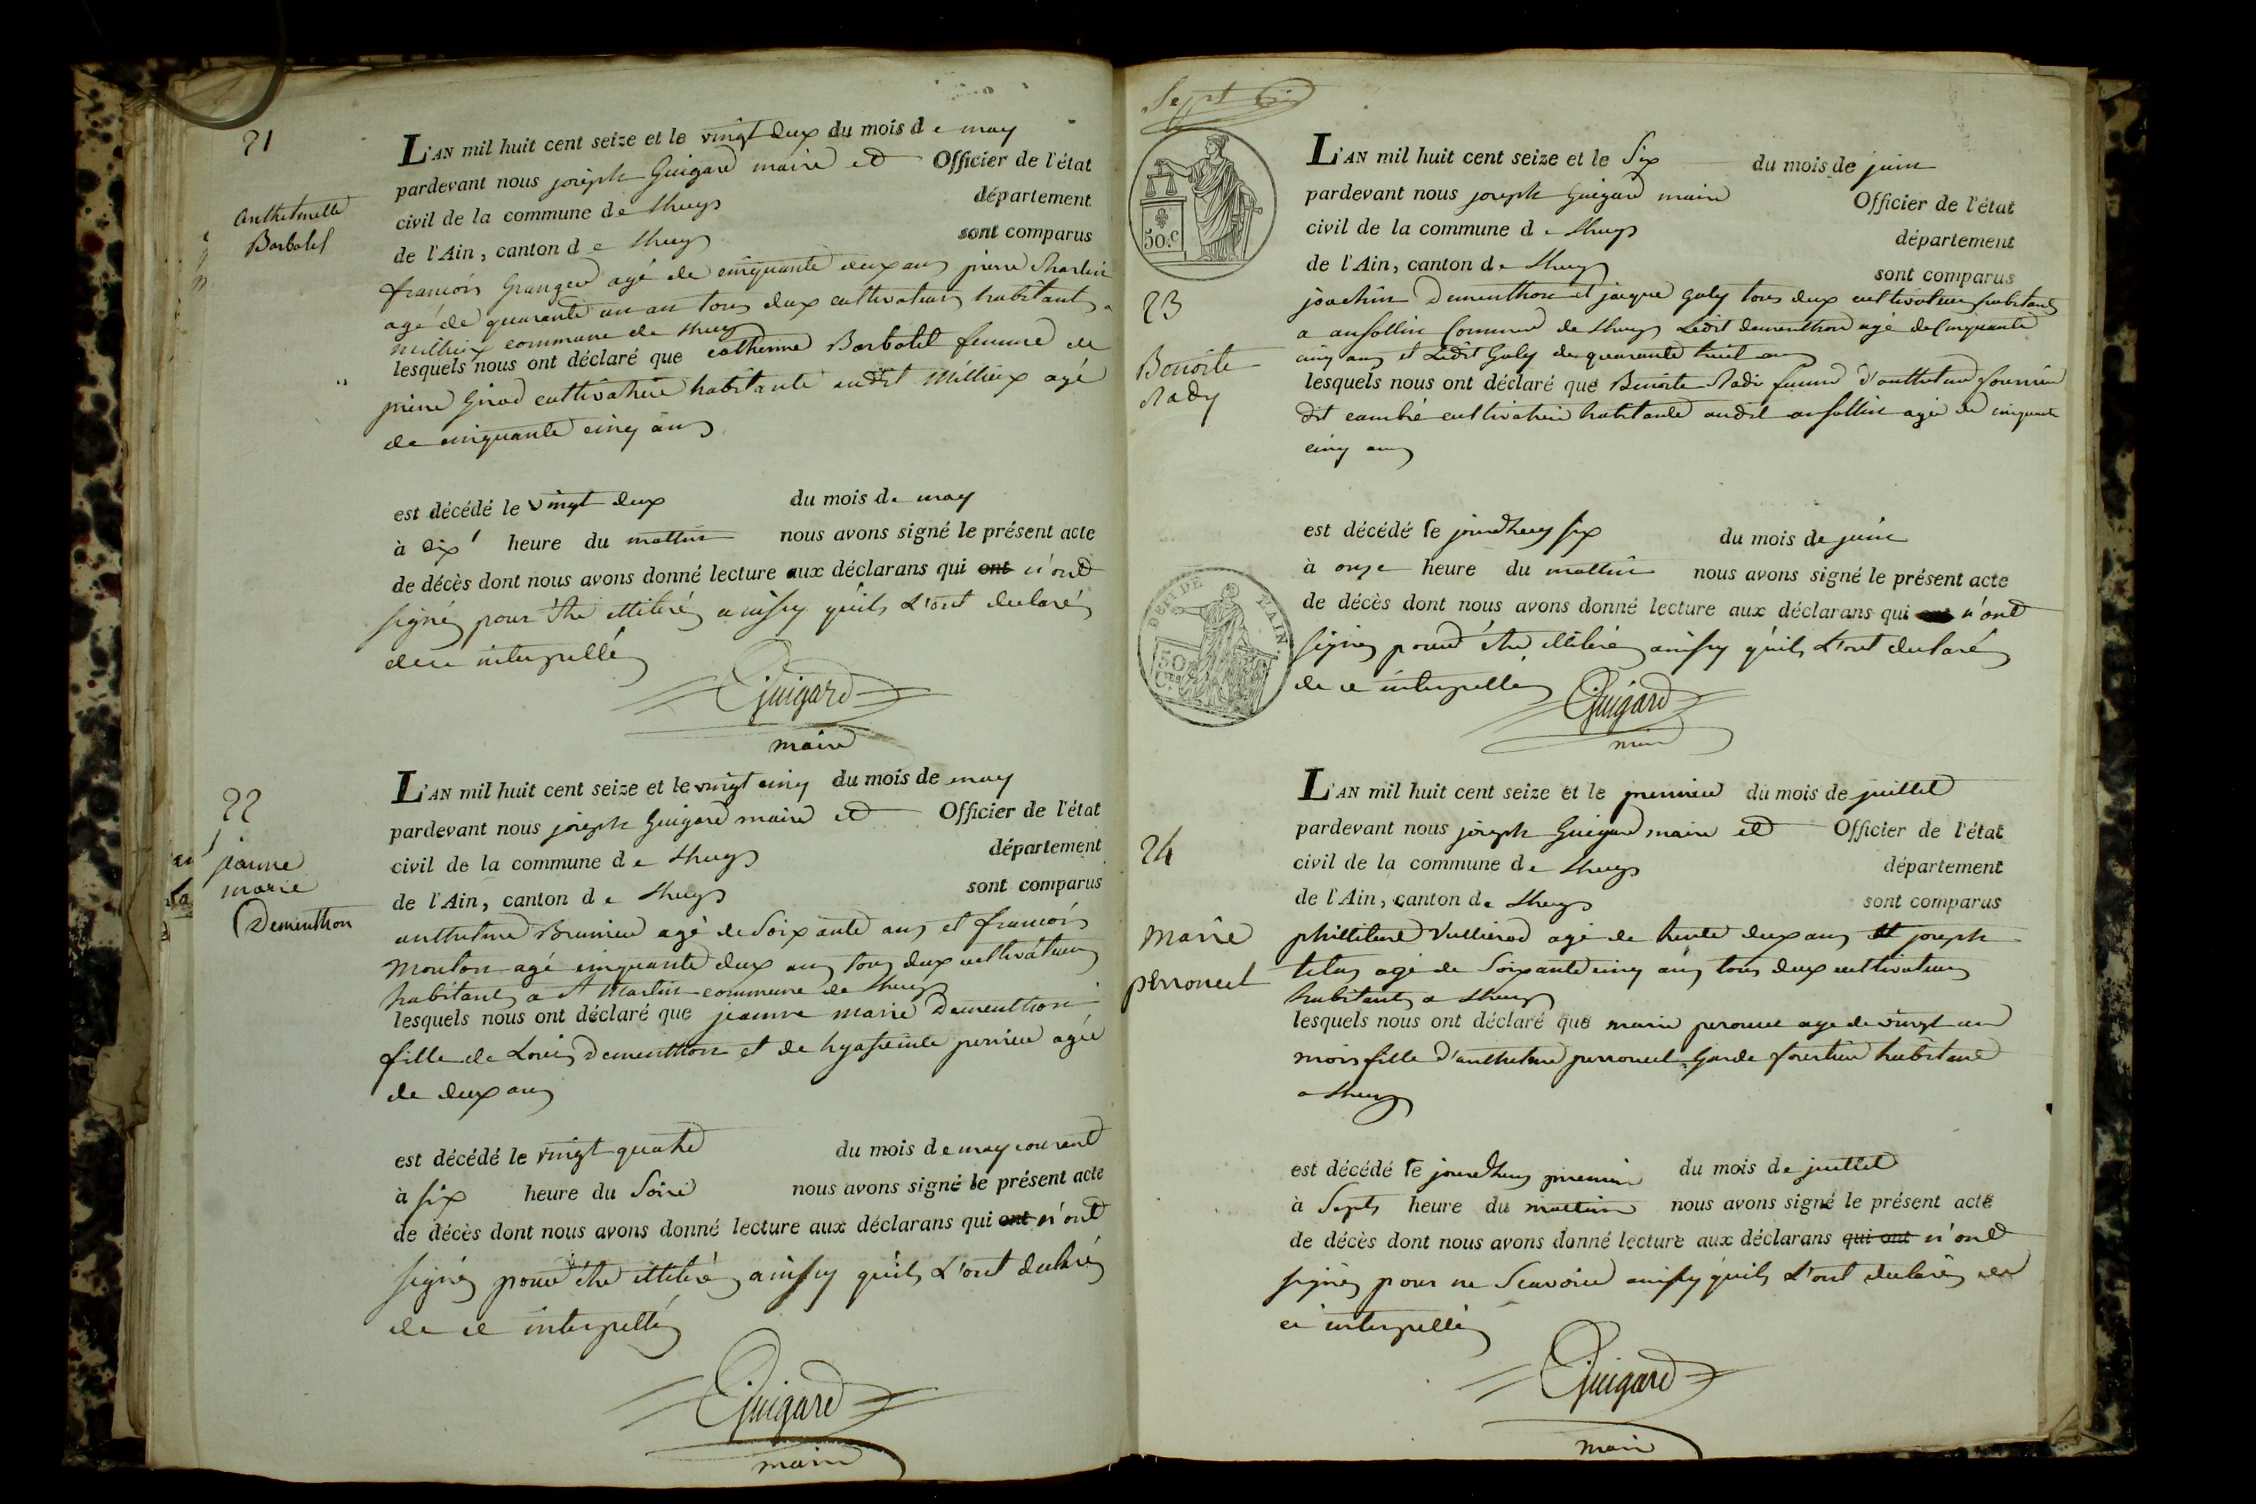 21
L'AN mil huit cent seize et le vingt deux du mois de may
pardevant nous joseph Guigard maire et Officier de l'état
civil de la commune de Lhuys département
de l'Ain, canton de Lhuys sont comparus
anthelmette
Barbolet
francois Granger agé de cinquante deux ans pierre Charlin
agé de quarante un an tous deux cultivateurs habitants a
millieux commune de Lhuys
lesquels nous ont déclaré que catherine Barbolet femme de
pierre Girod cultivatrice habitante audit Millieux agé
de cinquante cinq ans
est décédé le vingt deux du mois de may
à dix heure du mattin nous avons signé le présent acte
de décès dont nous avons donné lecture aux déclarans qui ont n'ont
signés pour être illitéré ainssy quils L'ont declarés
de ce interpellés
Guigard
maire
22
jeanne
marie
Dementhon
L'AN mil huit cent seize et le vingt cinq du mois de may
pardevant nous joseph Guigard maire et Officier de l'état
civil de la commune de Lhuys département
de l'Ain, canton de Lhuys sont comparus
anthelme Brunier agé de Soixante ans et francois
Mouton agé cinquante deux ans tous deux cultivateurs
habitants a St Martin commune de Lhuys
lesquels nous ont déclaré que jeanne marie Dementhon
fille de Louis Dementhon et de hyasseinte perrier agée
de deux ans
est décédé le vingt quatre du mois de may courant
à six heure du Soire nous avons signé le présent acte
de décès dont nous avons donné lecture aux déclarans qui ont n'ont
signés pour être illitéré ainssy quils L'ont declarés
de ce interpellés
Guigard
maire
Sept
50.c
23
Benoite
Rady
L'AN mil huit cent seize et le Six du mois de juin
pardevant nous joseph Guigard maire Officier de l'état
civil de la commune de Lhuys département
de l'Ain, canton de Lhuys sont comparus
joachin Dementhon et jacque Goly tous deux cultivateurs habitants
a ansollin Commune de Lhuys Ledit dementhon agé de Cinquante
cinq ans et Ledit Goly de quarante huit ans
lesquels nous ont déclaré que Benoite Radi femme d'anthelme fournier
dit cambé cultivatrice habitante audit ansollin agée de cinquante
cinq ans
est décédé le jourdhuy six du mois de juin
à onze heure du mattin nous avons signé le présent acte
de décès dont nous avons donné lecture aux déclarans qui n'ont
signés pour être illitéré ainssy quils L'ont declarés
de ce interpellés
DEP.DE L'AIN.
50
Cs
Guigard
maire
24
Marie
perroncel
L'AN mil huit cent seize et le premier du mois de juillet
pardevant nous joseph Guigard maire et Officier de l'état
civil de la commune de Lhuys département
de l'Ain, canton de Lhuys sont comparus
phillibert Vullierod agé de trente deux ans et joseph
titus agé de Soixante cinq ans tous deux cultivateurs
habitants a Lhuys
lesquels nous ont déclaré que marie peroncel age de vingt un
mois fille d'anthelme perroncel Garde forestier habitant
a Lhuys
est décédé le jourdhuy premier du mois de juillet
à Septs heure du mattin nous avons signé le présent acte
de décès dont nous avons donné lecture aux déclarans qui ont n'ont
signés pour ne Scavoire ainssy quils L'ont declarés de
ce interpellés
Guigard
maire